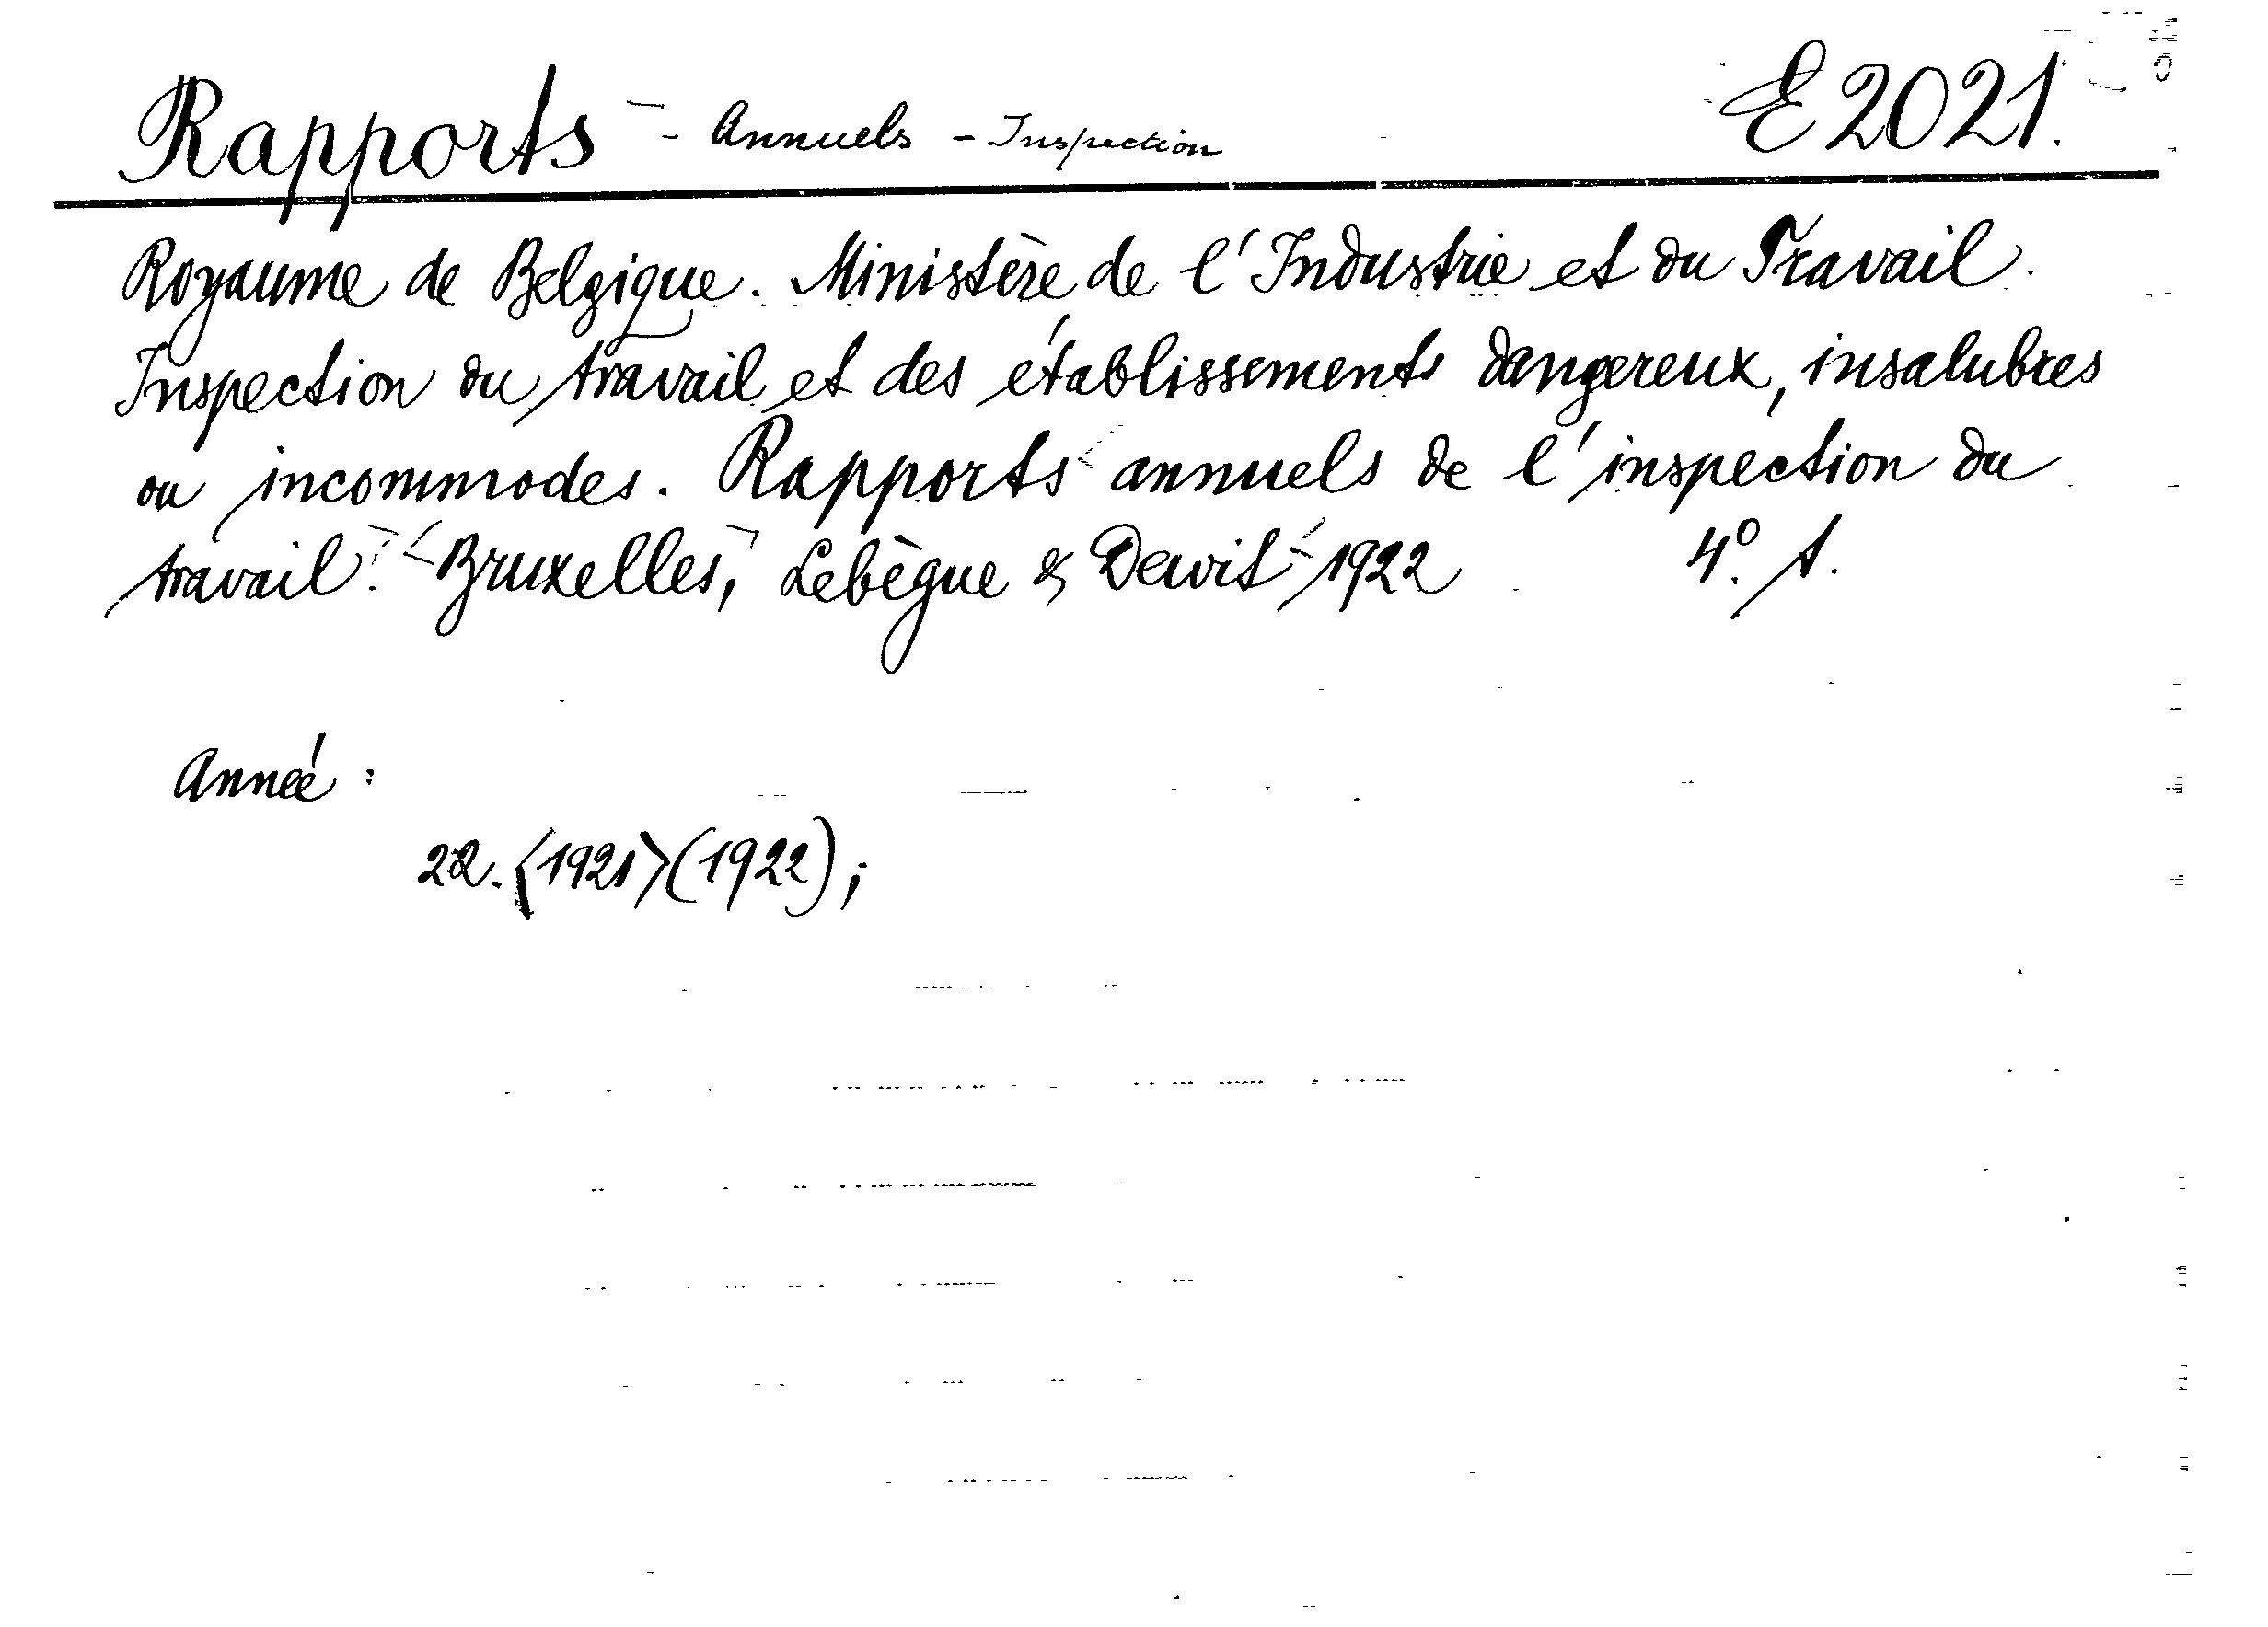 Rapports - Annuels - Inspection E 2021.
Royaume de Belgique. Ministère de l'Industrie et du Travail.
Inspection du travail et des établissements dangereux, insalubres
ou incommodes. Rapports annuels de l'inspection du
travail. Bruxelles, Lebègue & Dewit 1922 4°. t.
Année :
22. <1921> (1922);